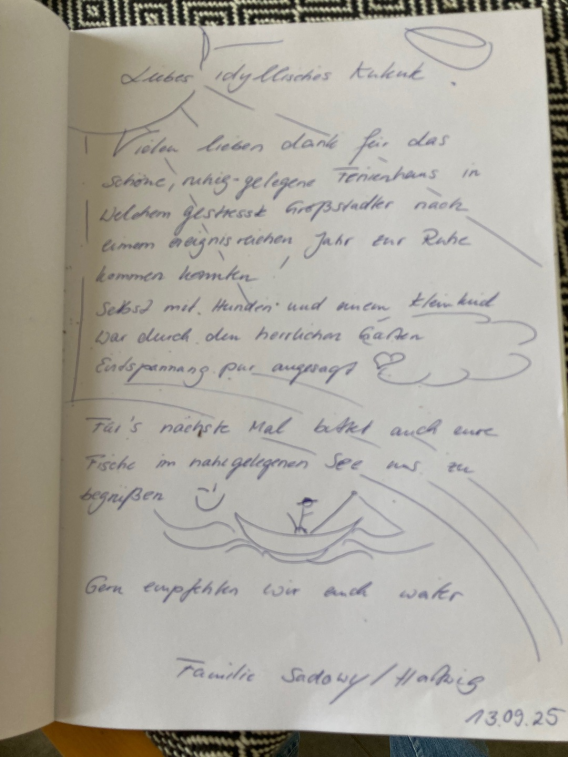 Liebes idyllisches Kukuk.
Vielen lieben dank für das
schöne, ruhig-gelegene Ferienhaus in
welchem gestresst Großstadler nach
einem ereignisreichen Jahr zur Ruhe
kommen konnten!
Selbst mit Hunden und einem Kleinkind
war durch den herrlichen Garten
Endspannung pur angesagt
Für's nächste Mal bittet auch eure
Fische im nahegelegenen See uns zu
begrüßen
Gern empfehlen wir euch weiter
Familie Sadowy/Hartwig
13.09.25